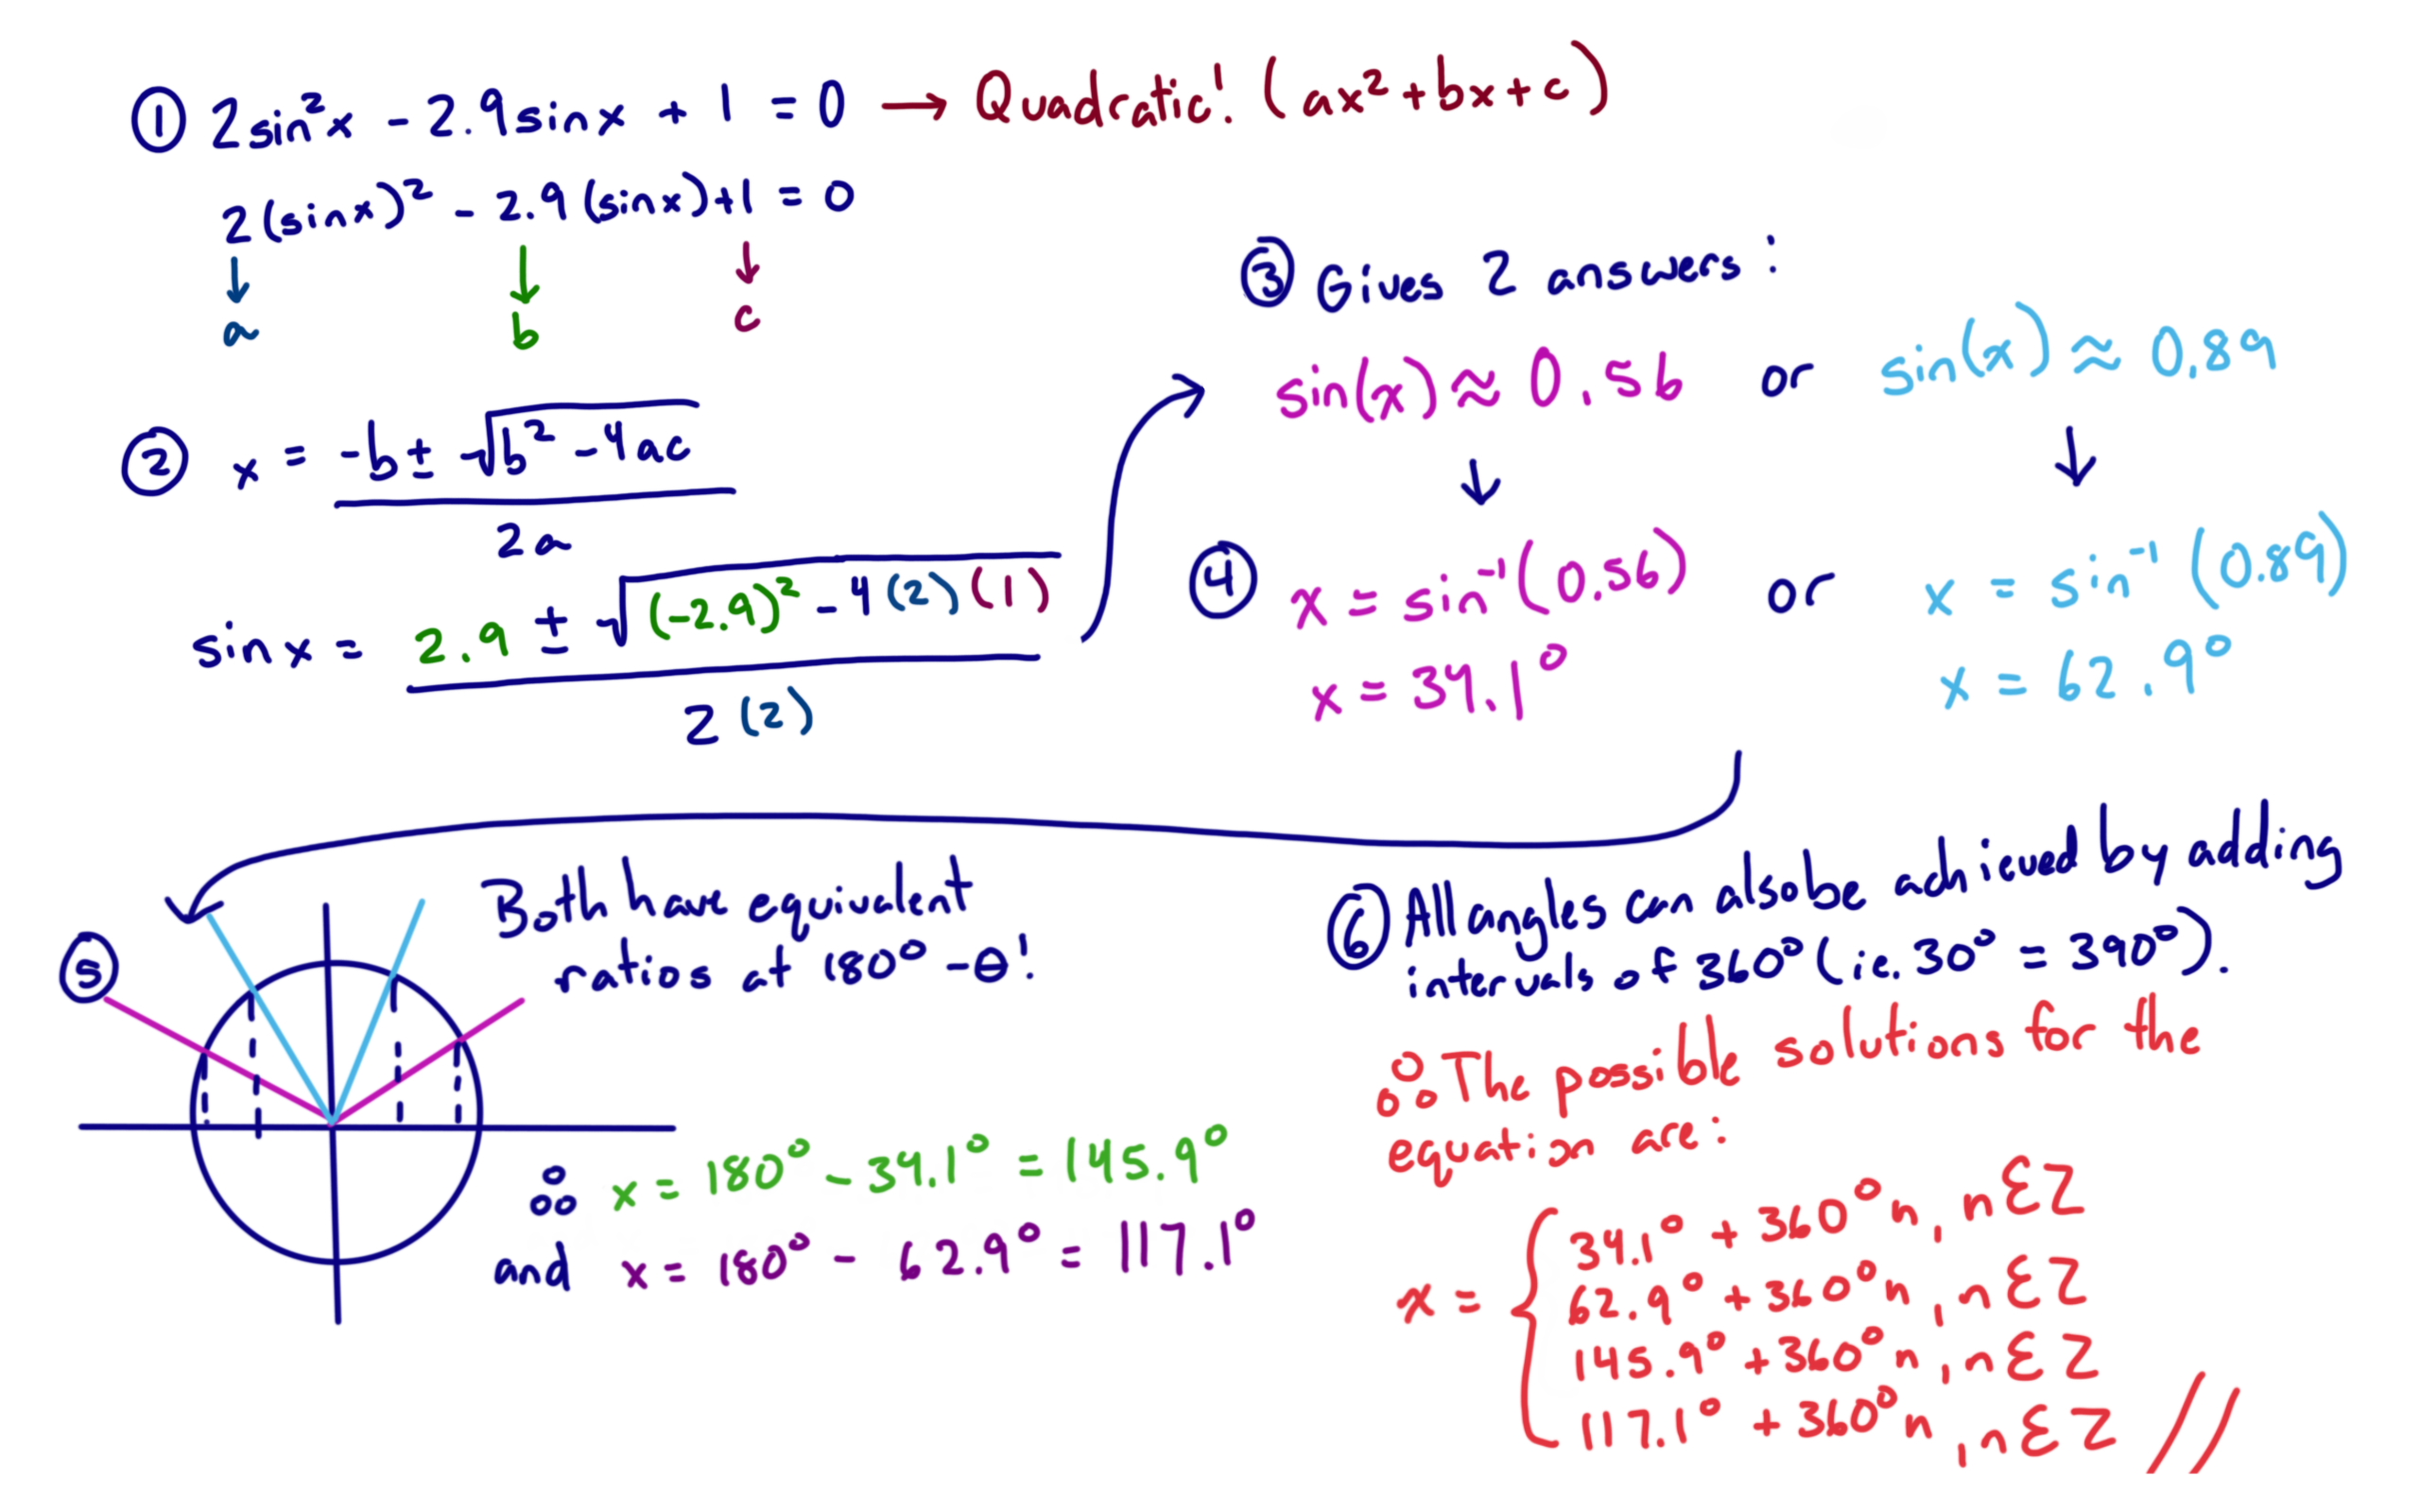 ① 2sin²x - 2.9sinx + 1 = 0 → Quadratic! (ax²+bx+c)
2(sinx)² - 2.9(sinx)+1 = 0
↓ ↓ ↓
a b c
② x = -b±√b²-4ac
2a
sinx = 2.9 ± √(-2.9)²-4(2)(1)
2(2)
③ Gives 2 answers:
sin(x) ≈ 0.56 or sin(x) ≈ 0.89
↓ ↓
④ x = sin⁻¹(0.56) or x = sin⁻¹(0.89)
x = 34.1° x = 62.9°
⑤ Both have equivalent
ratios at 180° - θ!
∴ x = 180° - 34.1° = 145.9°
and x = 180° - 62.9° = 117.1°
⑥ All angles can also be achieved by adding
intervals of 360° (ie. 30° = 390°).
∴ The possible solutions for the
equation are:
x = { 34.1° + 360°n, n ε Z
62.9° + 360°n, n ε Z
145.9° + 360°n, n ε Z
117.1° + 360°n, n ε Z //